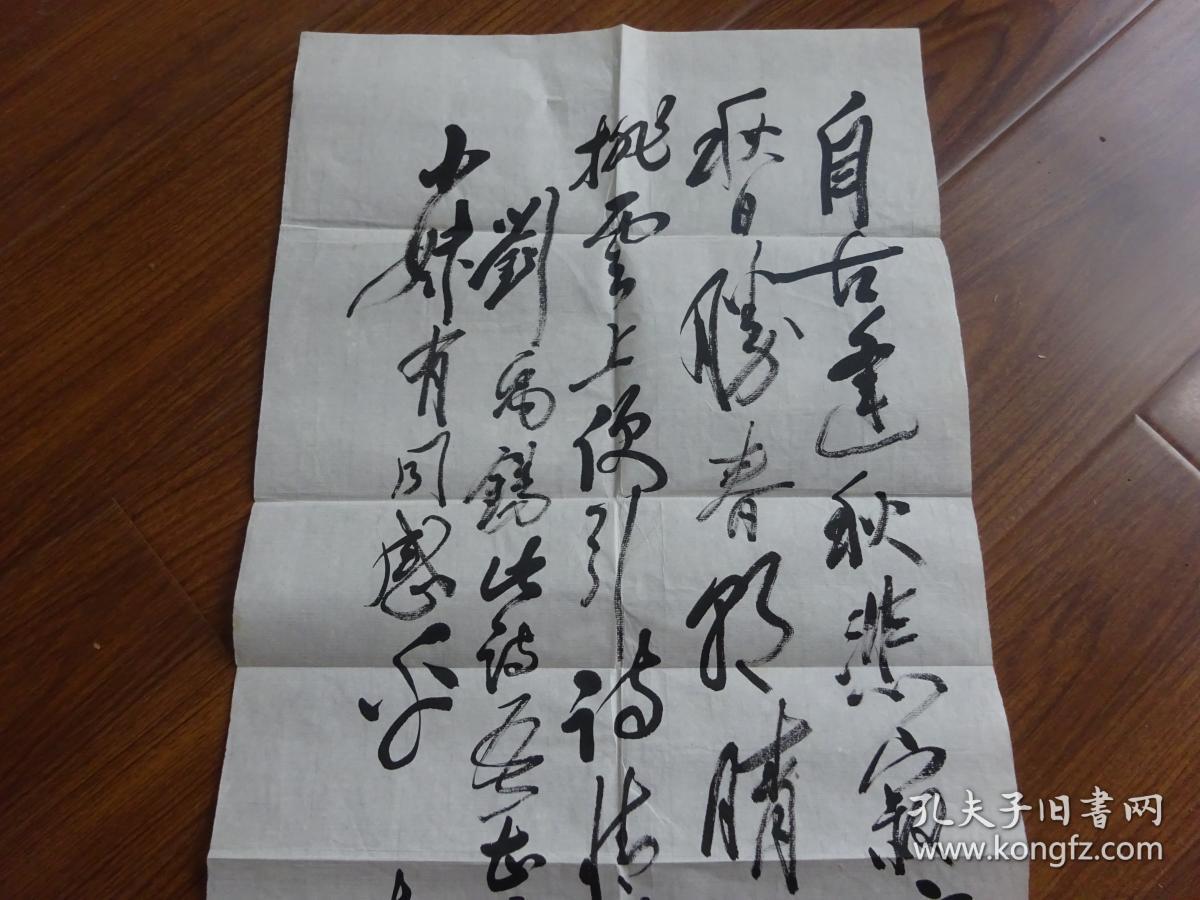 自古逢秋悲寂
秋日勝春朝晴
排雲上便引诗情
劉禹錫此诗吾
小妹有同感乎
孔夫子旧书网
www.kongfz.com